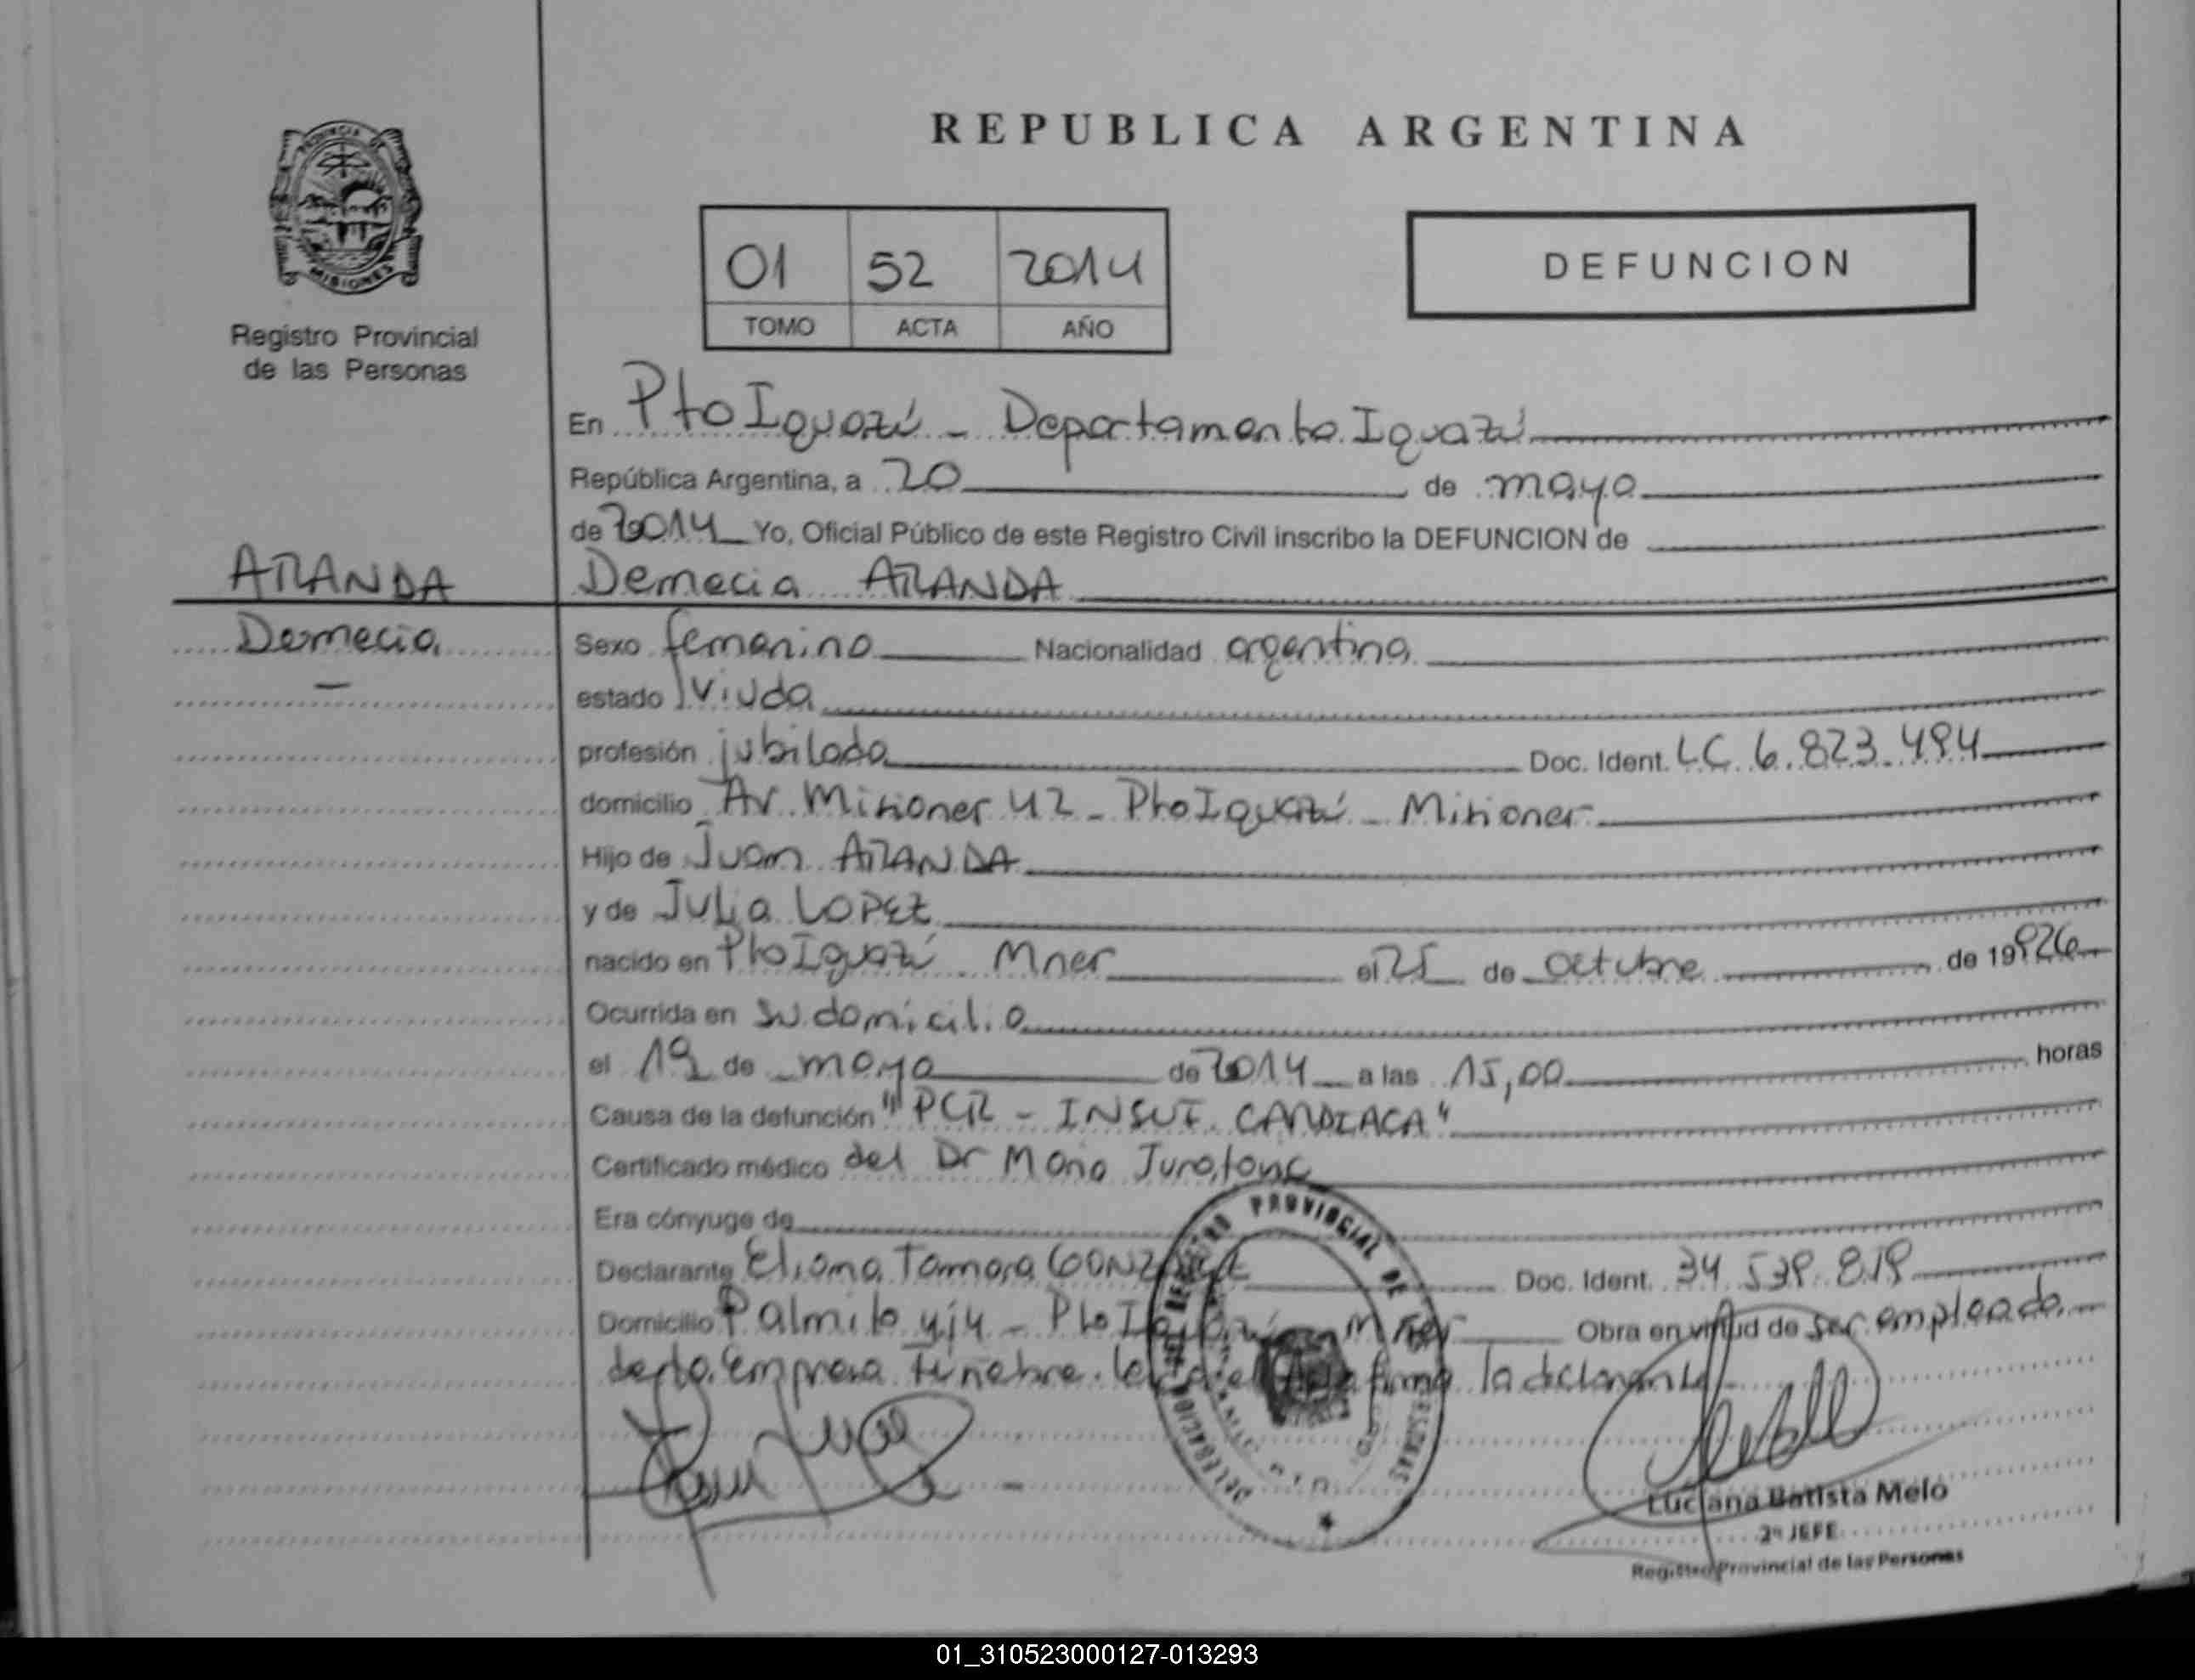 REPUBLICA ARGENTINA
PROVINCIA DE
MISIONES
Registro Provincial
de las Personas
01 52 2014
TOMO ACTA AÑO
DEFUNCION
En Pto Iguazú - Departamento Iguazú
República Argentina, a 20 de mayo
de 2014 Yo, Oficial Público de este Registro Civil inscribo la DEFUNCION de
ARANDA Demecia ARANDA
Demecia
Sexo femenino Nacionalidad argentina
estado viuda
profesión jubilada Doc. Ident. LC 6.823.494
domicilio Av. Misiones 42 - Pto Iguazú - Misiones
Hijo de Juan ARANDA
y de Julia LOPEZ
nacido en Pto Iguazú Mnes el 25 de octubre de 19 926
Ocurrida en su domicilio
el 19 de mayo de 2014 a las 15,00 horas
Causa de la defunción "PCR - INSUF. CARDIACA"
Certificado médico del Dr
Era cónyuge de
Declarante Eliana Tamara Doc. Ident. 34.539.819
Domicilio Palmito y/4 - Pto Mnes Obra en virtud de ser empleada
de la Empresa Fúnebre. firma la declarante
PROVINCIAL DE
DELEGACION
Luciana Batista Melo
2º JEFE
Registro Provincial de las Personas
01_310523000127-013293